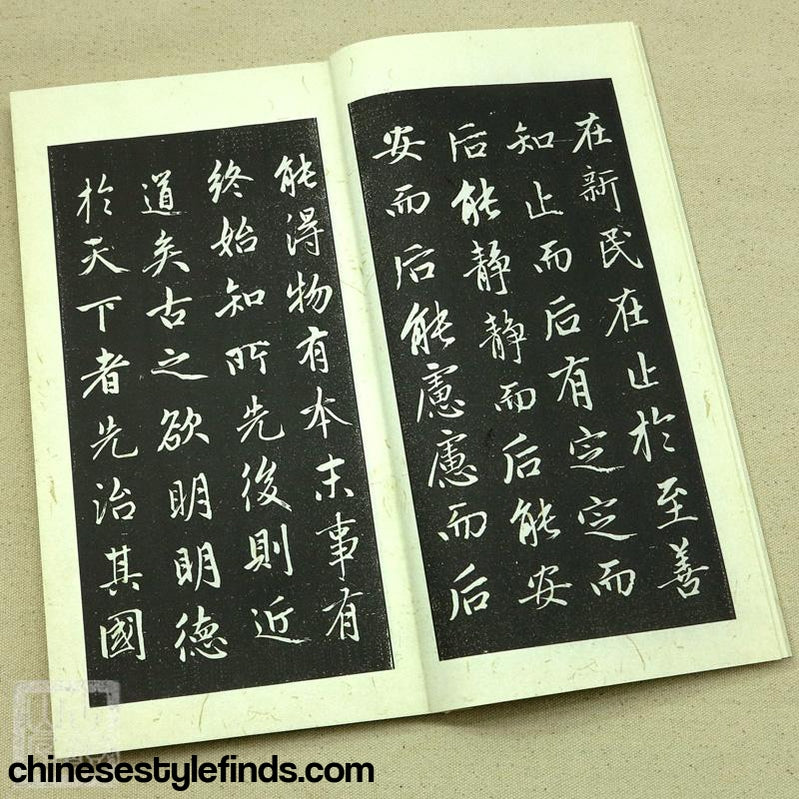 在新民在止於至善
知止而后有定定而
后能静静而后能安
安而后能慮慮而后
能淂物有本末事有
终始知所先後則近
道矣古之欲明明德
於天下者先治其國
chinesestylefinds.com